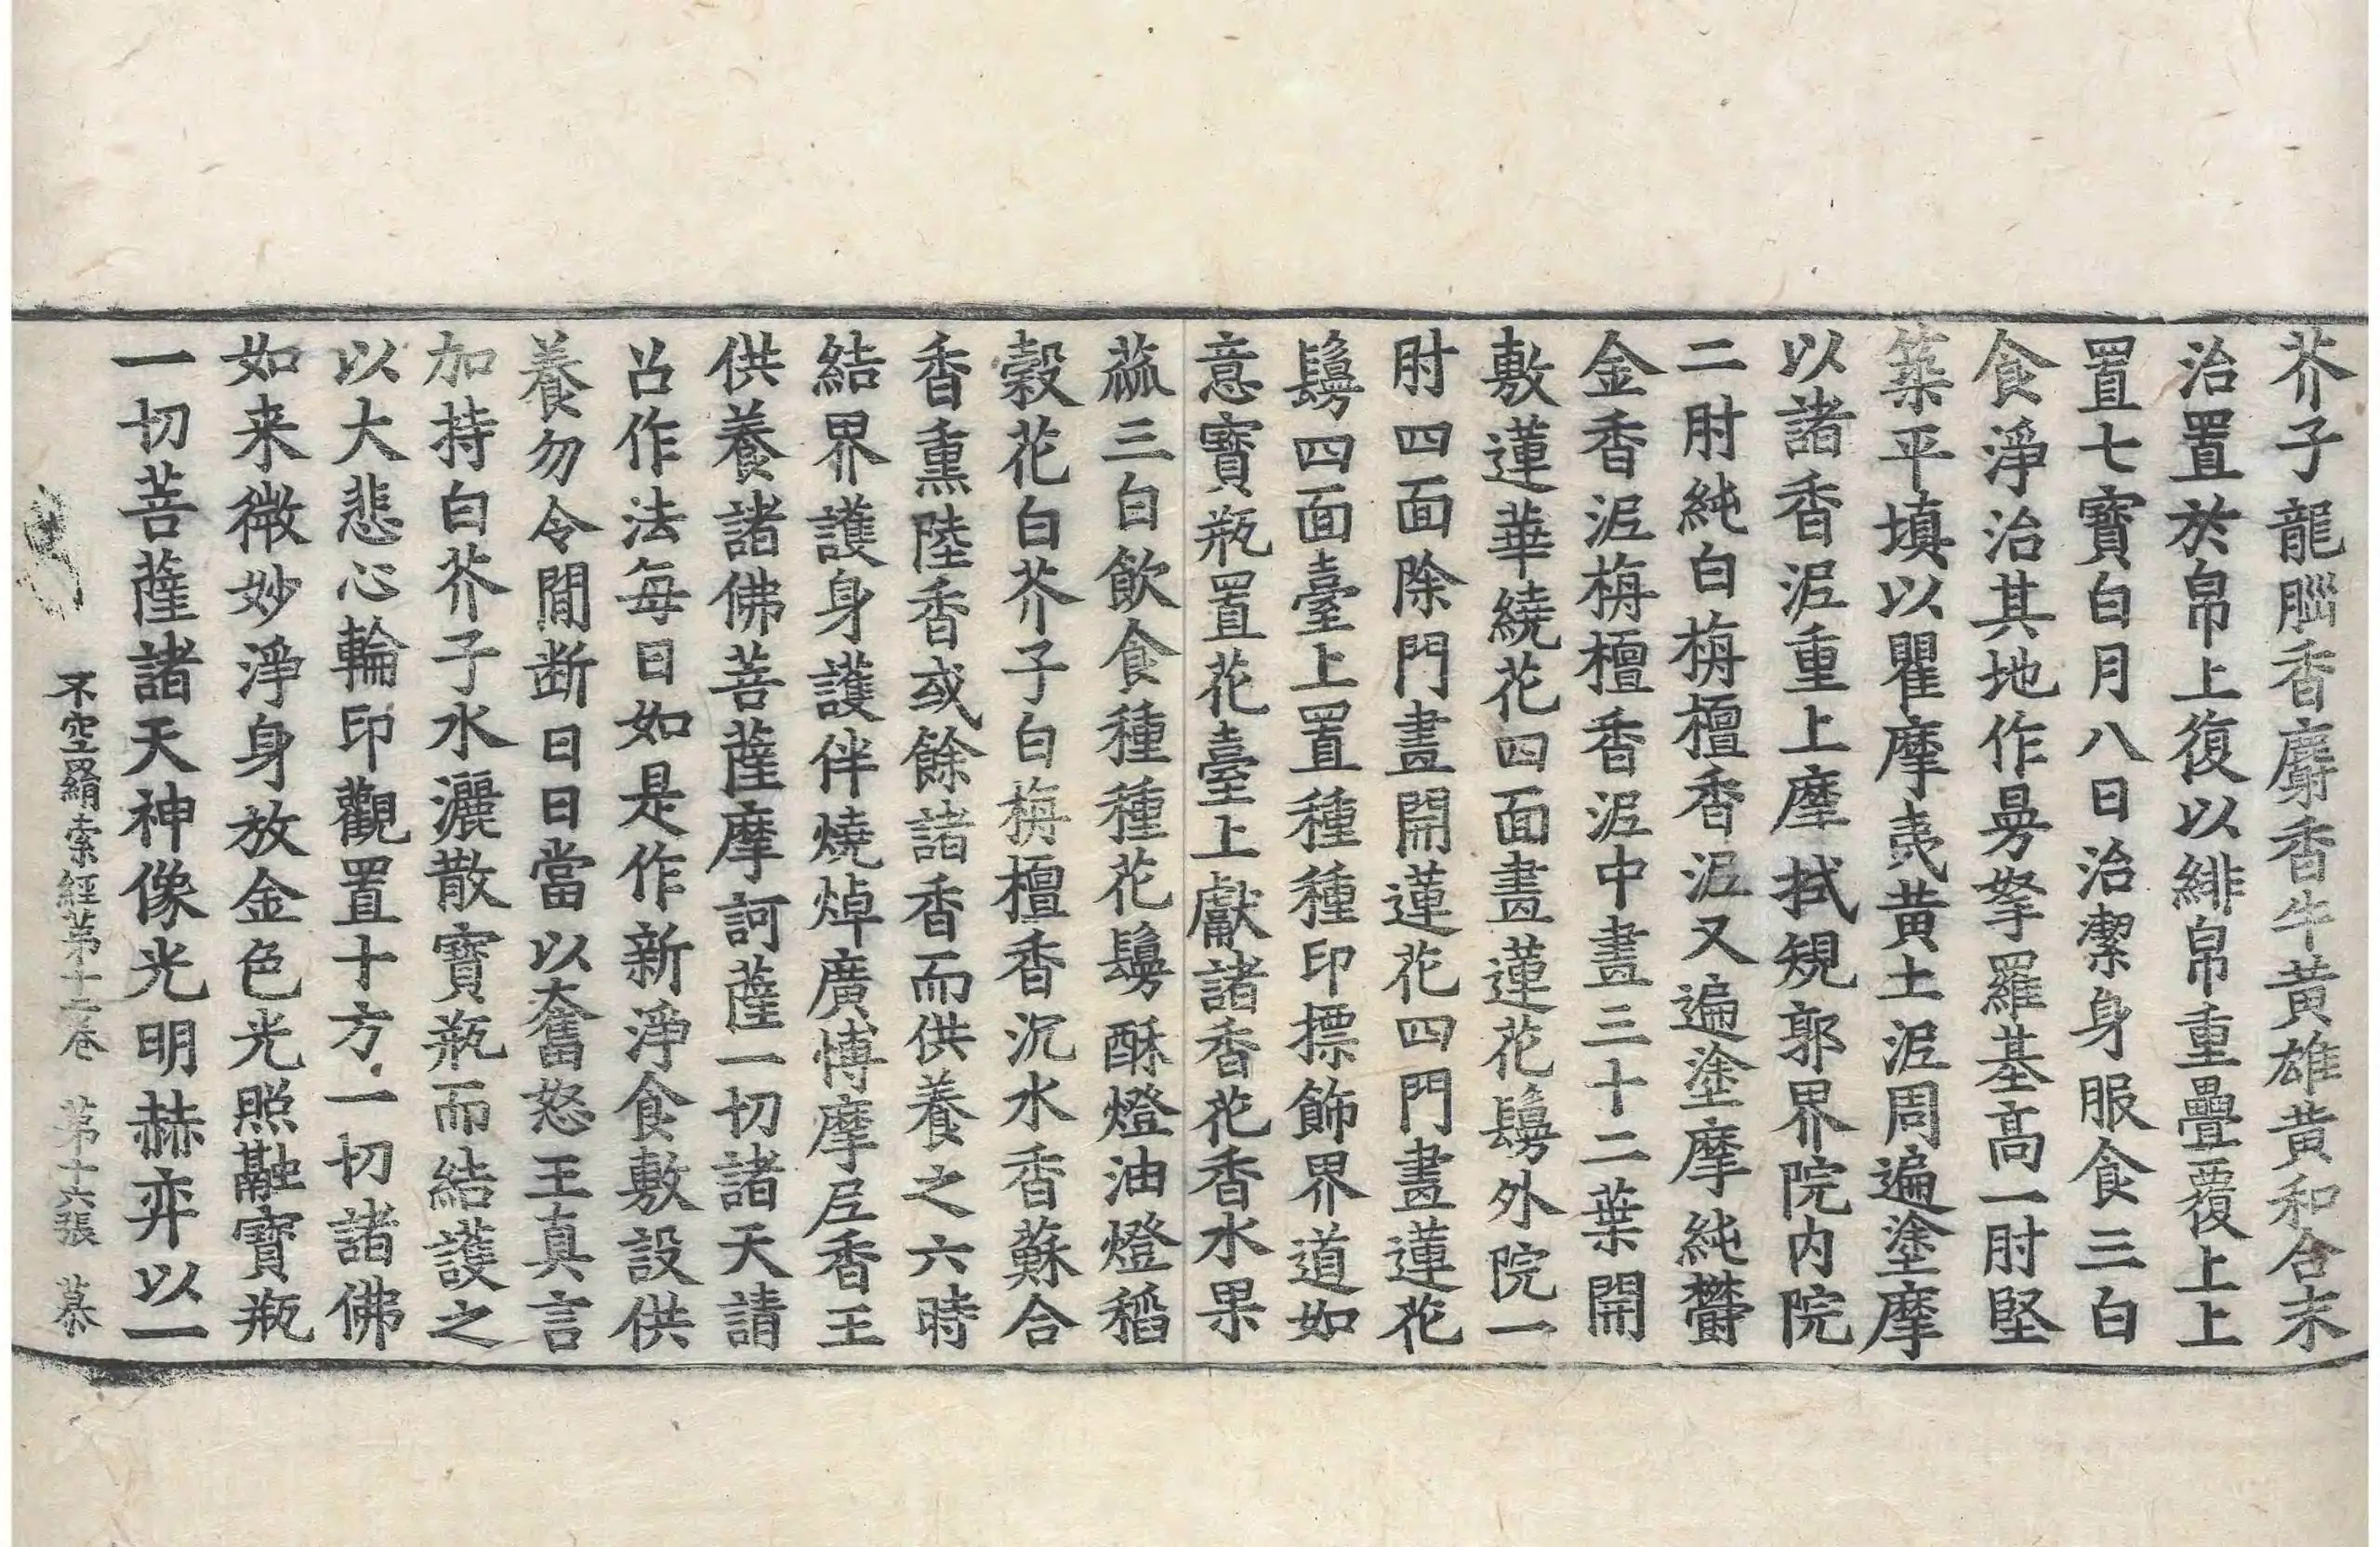 芥子龍腦香麝香牛黃雄黃和合末
治置於帛上復以緋帛重疊覆上上
置七寶白月八日治潔身服食三白
食淨治其地作曼拏羅基高一肘堅
築平填以瞿摩夷黃土泥周遍塗摩
以諸香泥重上摩拭規郭界院內院
二肘純白栴檀香泥又遍塗摩純欝
金香泥栴檀香泥中畫三十二葉開
敷蓮華繞花四面畫蓮花鬘外院一
肘四面除門畫開蓮花四門畫蓮花
鬘四面臺上置種種印摽飾界道如
意寶瓶置花臺上獻諸香花香水果
蓏三白飲食種種花鬘酥燈油燈稻
穀花白芥子白栴檀香沉水香蘇合
香熏陸香或餘諸香而供養之六時
結界護身護伴燒焯廣博摩尼香王
供養諸佛菩薩摩訶薩一切諸天請
召作法每日如是作新淨食敷設供
養勿令間断日日當以奮怒王真言
加持白芥子水灑散寶瓶而結護之
以大悲心輪印觀置十方一切諸佛
如来微妙淨身放金色光照融寶瓶
一切菩薩諸天神像光明赫弈以一
不空羂索經苐十二卷 苐十六張 慕